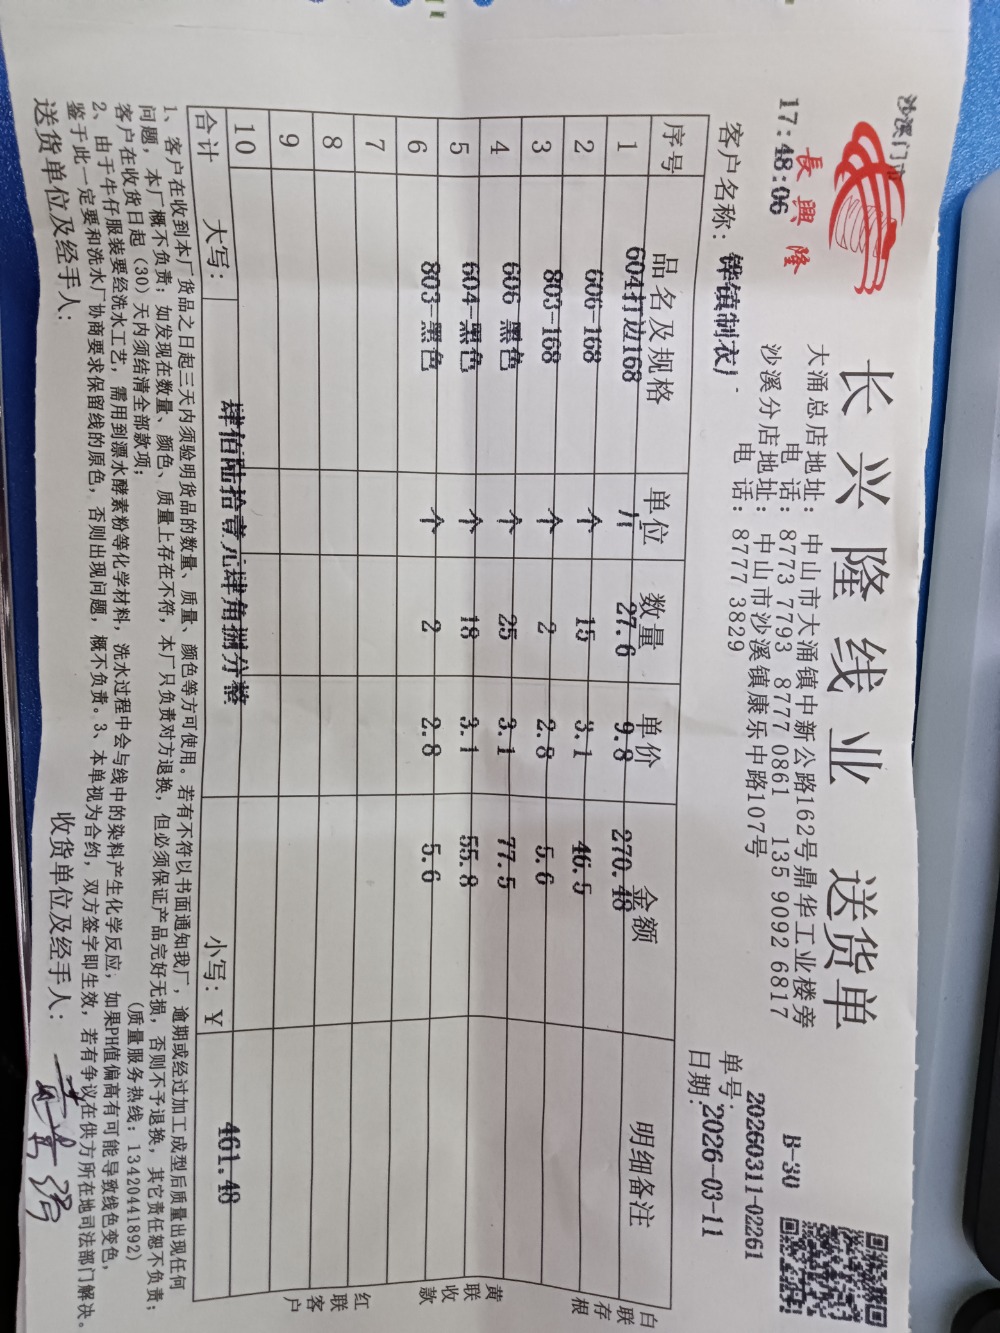 沙溪门市
17:48:06
長興隆
长兴隆线业 送货单
大涌总店地址：中山市大涌镇中新公路162号鼎华工业楼旁
电话：8773 7793 8777 0861 135 9092 6817
沙溪分店地址：中山市沙溪镇康乐中路107号
电话：8777 3829
B-30
单号：20260311-02261
日期：2026-03-11
客户名称：镇制衣）
序号 品名及规格 单位 数量 单价 金额 明细备注
1 604打边168 27.6 9.8 270.48
2 606-168 个 15 3.1 46.5
3 803-168 个 2 2.8 5.6
4 606 黑色 个 25 3.1 77.5
5 604-黑色 个 18 3.1 55.8
6 803-黑色 个 2 2.8 5.6
7
8
9
10
合计 大写：肆佰陆拾壹元肆角捌分整 小写：￥ 461.48
白联存根
黄联收款
红联客户
1、客户在收到本厂货品之日起三天内须验明货品的数量、质量、颜色等方可使用。若有不符以书面通知我厂，逾期或经过加工成型后质量出现任何
问题，本厂概不负责；如发现在数量、颜色、质量上存在不符，本厂只负责对方退换，但必须保证产品完好无损，否则不予退换，其它责任恕不负责；
客户在收货日起（30）天内须结清全部款项； （质量服务热线：13420441892）
2、由于牛仔服装要经洗水工艺，需用到漂水酵素粉等化学材料，洗水过程中会与线中的染料产生化学反应，如果PH值偏高有可能导致线色变色，
鉴于此一定要和洗水厂协商要求保留线的原色，否则出现问题，概不负责。3、本单视为合约，双方签字即生效，若有争议在供方所在地司法部门解决。
送货单位及经手人： 收货单位及经手人：